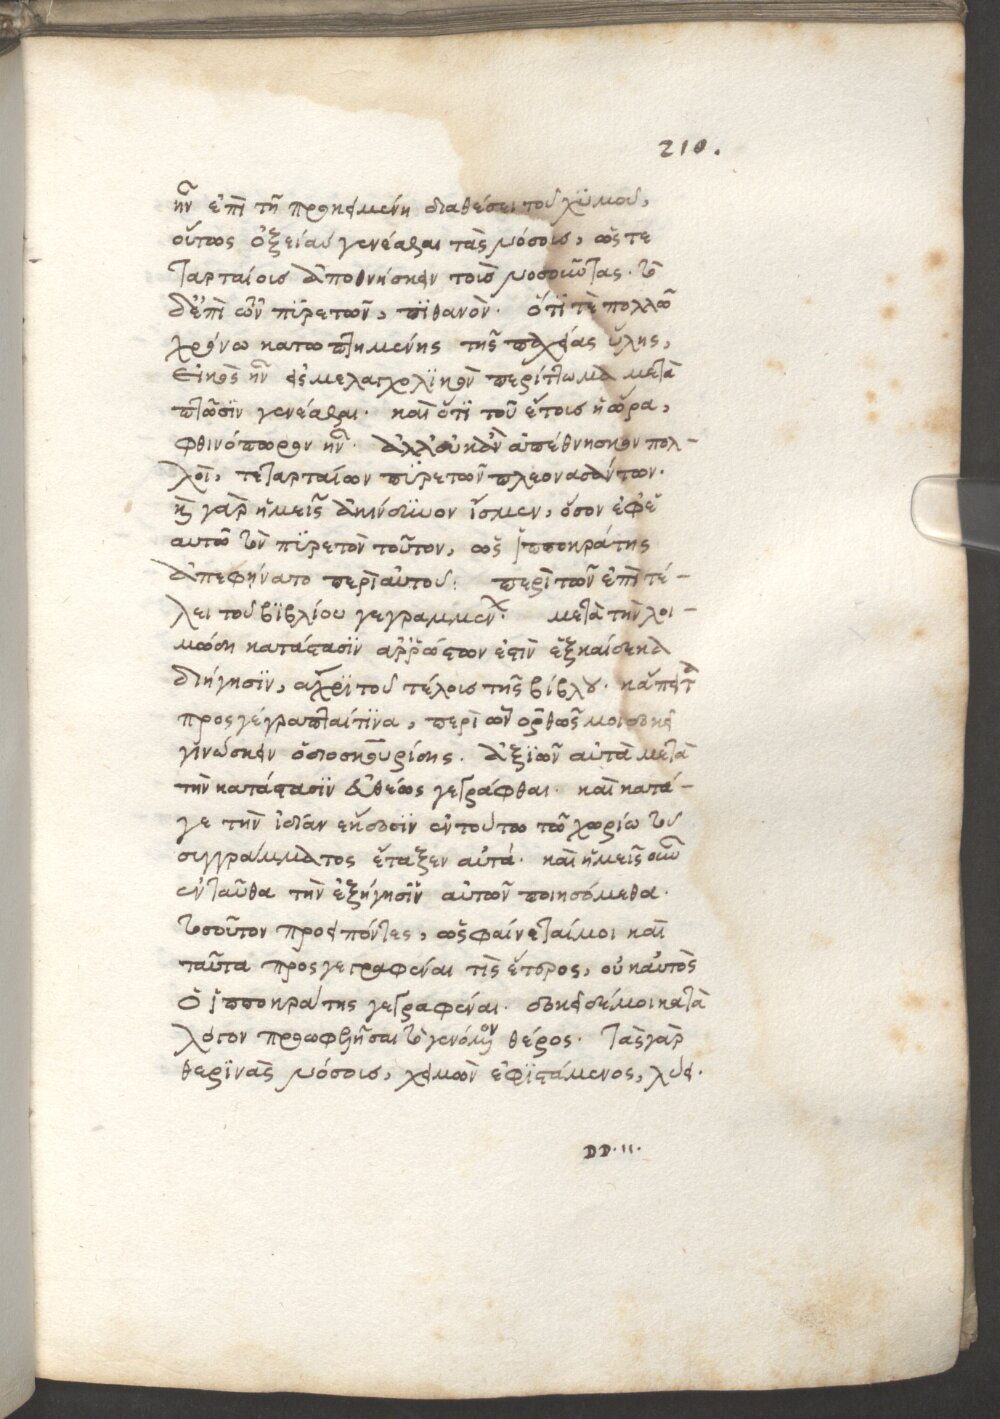 210.
ἦν ἐπὶ τῇ προκειμένῃ διαθέσει τοῦ χϋμοῦ,
οὕτως ὀξείας γενέσθαι τὰς νόσους, ὥς τε
ταρταίους ἀποθνήσκειν τοὺς νοσοῦντας. τὸ
δ' ἐπὶ τῶν πϋρετῶν, πϊθανὸν. ὅτϊ τὲ πολλῶ
χρόνω κατωπτημένης τῆς παχείας ὕλης,
εἰκὸς ἦν εἰς μελαγχολϊκὸν περίττωμα μετά
πτωσϊν γενέσθαι. καὶ ὅτϊ τοῦ ἔτους ἡ ὥρα,
φθινόπωρον ἦν. ἀλλ' οὐκ ἂν ἀπέθνησκον πολ-
λοὶ, τεταρταίων πϋρετῶν πλεονασάντων.
καὶ γὰρ ἡμεῖς ἀκίνδϋνον ἴσμεν, ὅσον ἐφ' ἑ
αυτῶ τὸν πϋρετὸν τοῦτον, ὡς ἱπποκράτης
ἀπεφήνατο περὶ αὐτοῦ: περὶ τῶν ἐπὶ τέ-
λει τοῦ βϊβλίου γεγραμμένων. μετὰ τὴν λοι-
μώδη κατάστασϊν ἀῤῥώστων ἐστὶν ἑξκαίδεκα
διήγησϊν, ἄχρϊ τοῦ τέλους τῆς βίβλου. κἄπειτα
προσγέγραπται τϊνα, περὶ ὧν ὀρθῶς μοι δοκεῖ
γϊνώσκειν ὁ διοσκουρίδης. ἀξιῶν αὐτὰ μετὰ
τὴν κατάστασϊν εὐθέως γεγράφθαι. καὶ κατά-
γε τὴν ἰδίαν ἔκδοσϊν ἐν τούτω τῶ χωρίω τοῦ
συγγράμματος ἔταξεν αὐτά. καὶ ἡμεῖς οὖν
ἐνταῦθα τὴν ἐξήγησϊν αὐτῶν ποιησόμεθα.
τοσοῦτον προειπόντες, ὡς φαίνεταί μοι καὶ
ταῦτα προσγεγραφέναι τὶς ἕτερος, οὐκ αὐτὸς
ὁ ἱπποκράτης γεγραφέναι. δοκεῖ δέ μοι κατὰ
λόγον πρωφελῆσαι τὸ γενόμενον θέρος. τὰς γὰρ
θερϊνὰς νόσους, χειμὼν ἐφϊστάμενος, λύει.
DD.II.